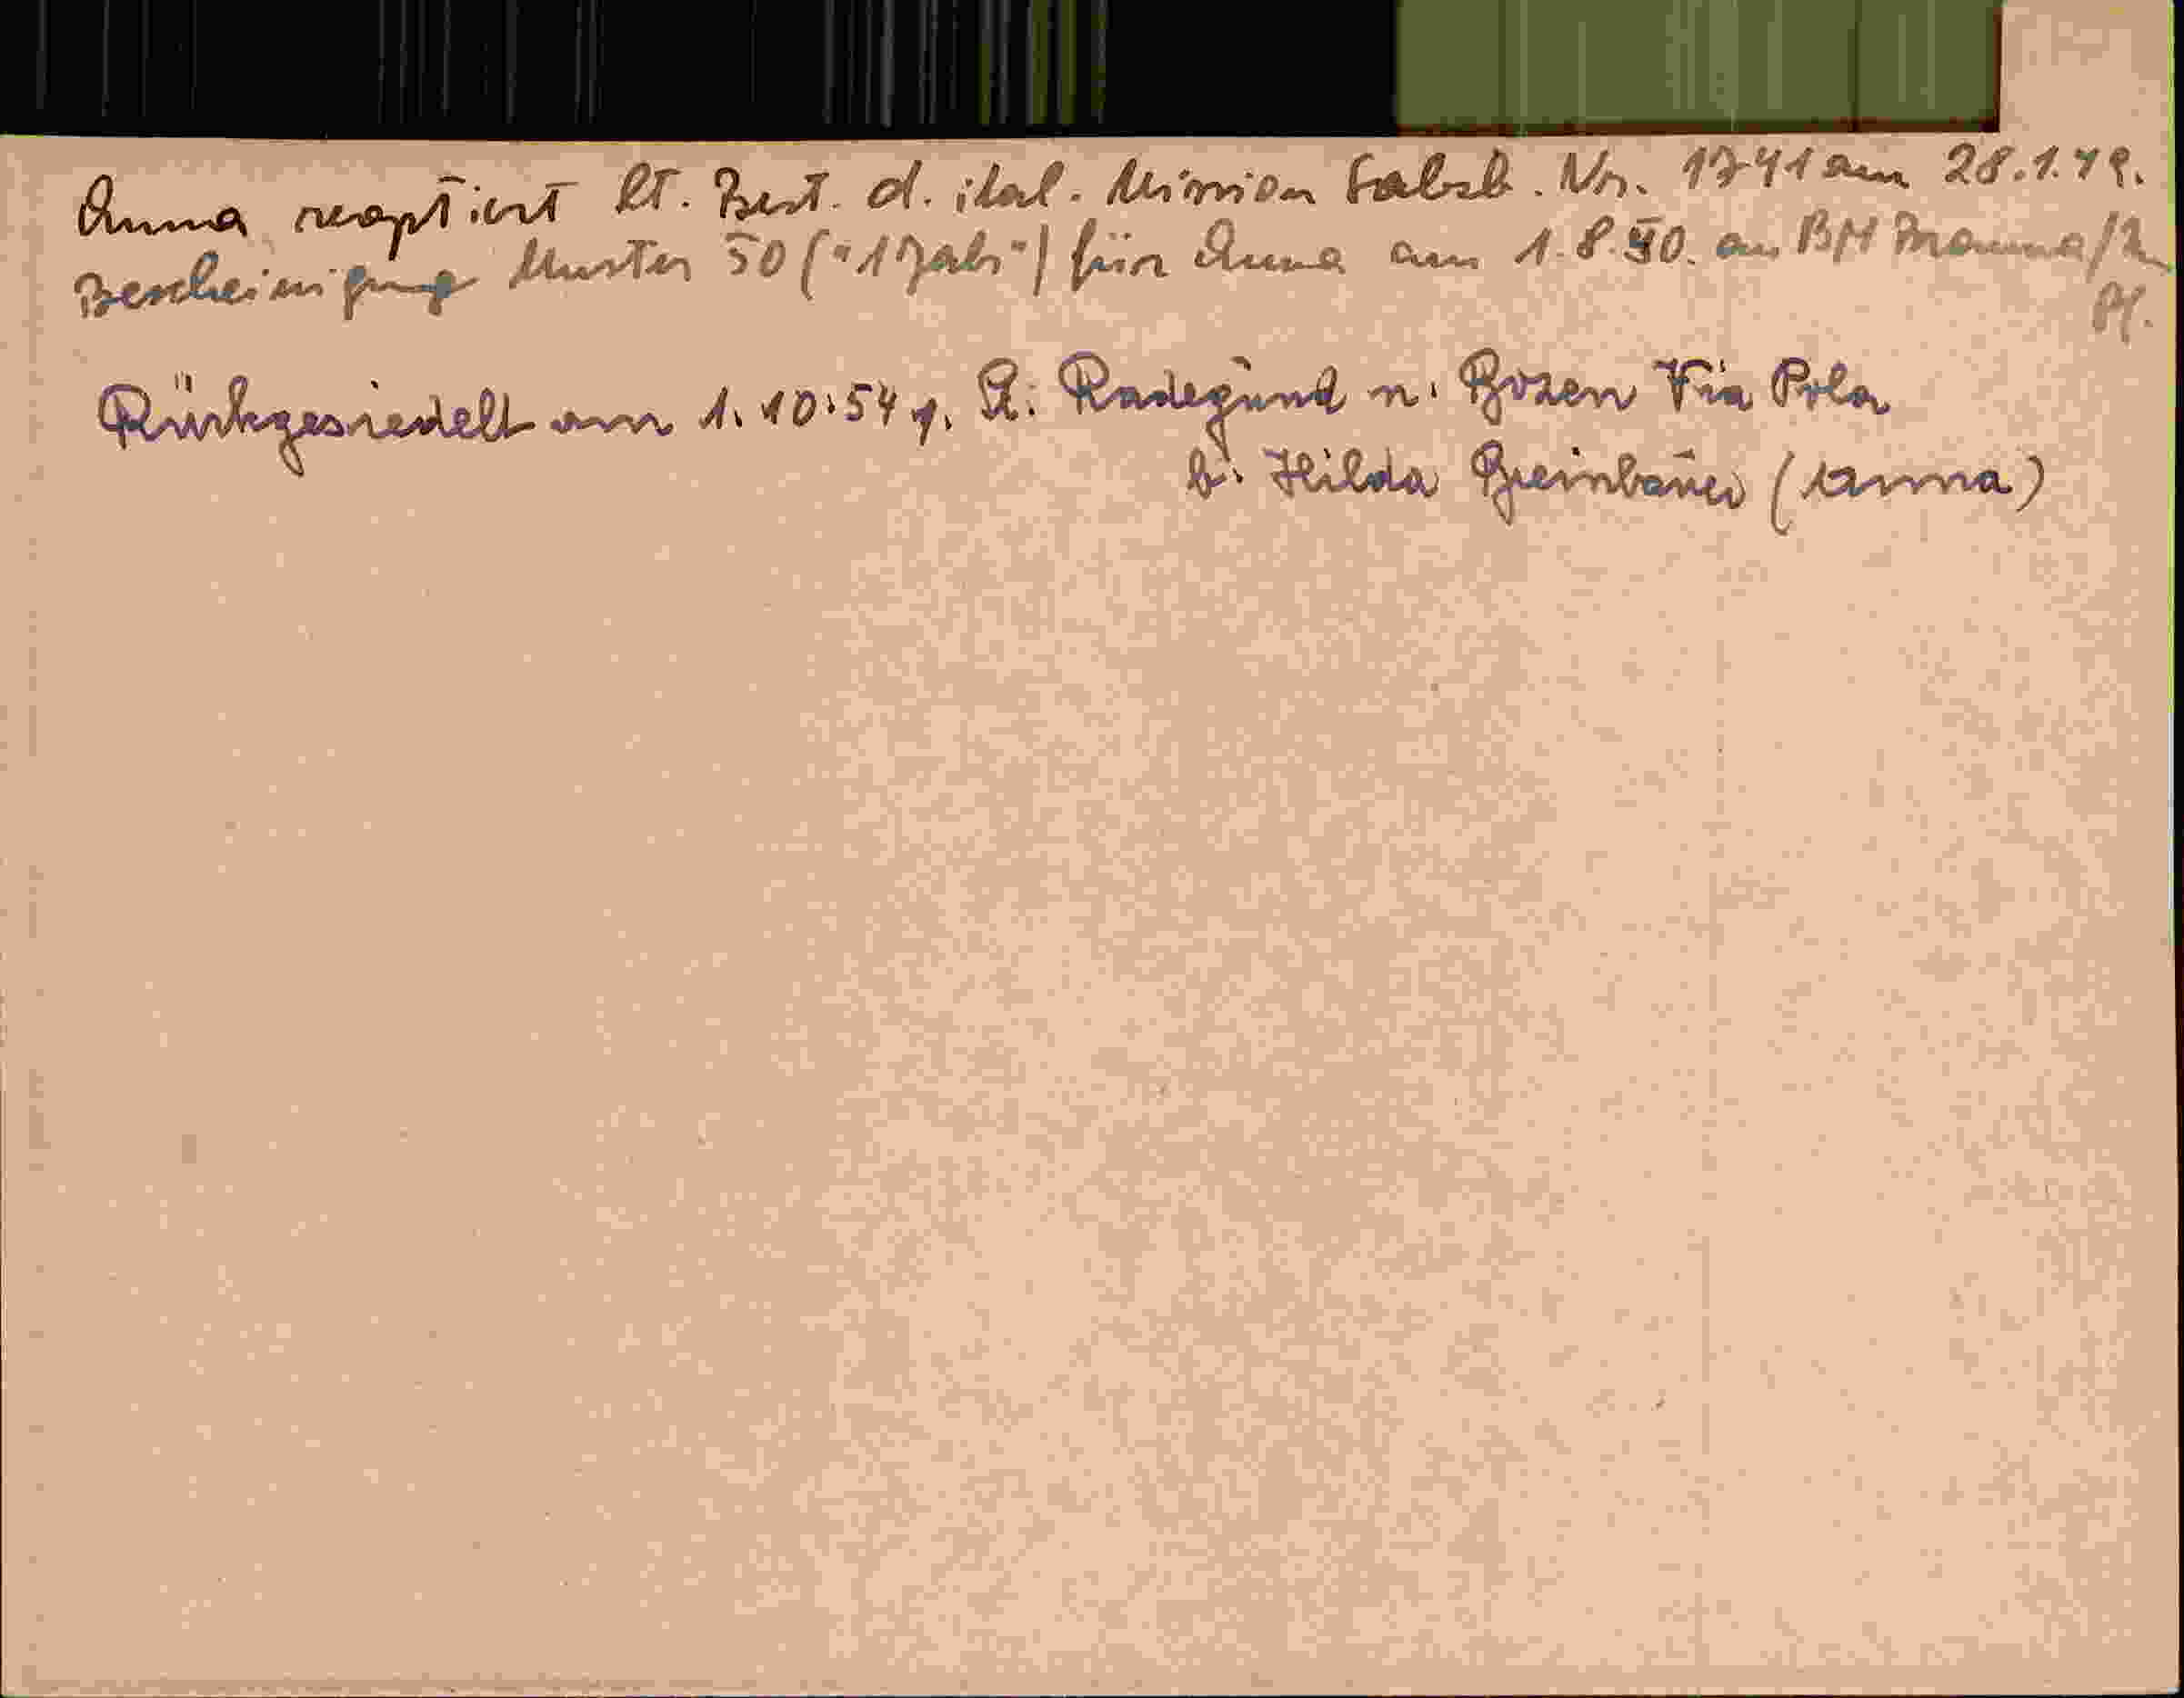 Anna reoptiert lt. Best. d. ital. Mission Salzb. Nr. 1741 am 28.1.49.
Bescheinigung Muster 50 ("1 Jahr") für Anna am 1.8.50. an BH Braunau/Inn
Pf.
Rückgesiedelt am 1.10.54 v. St. Radegund n. Bozen Via Pola
b. Hilda (Anna)